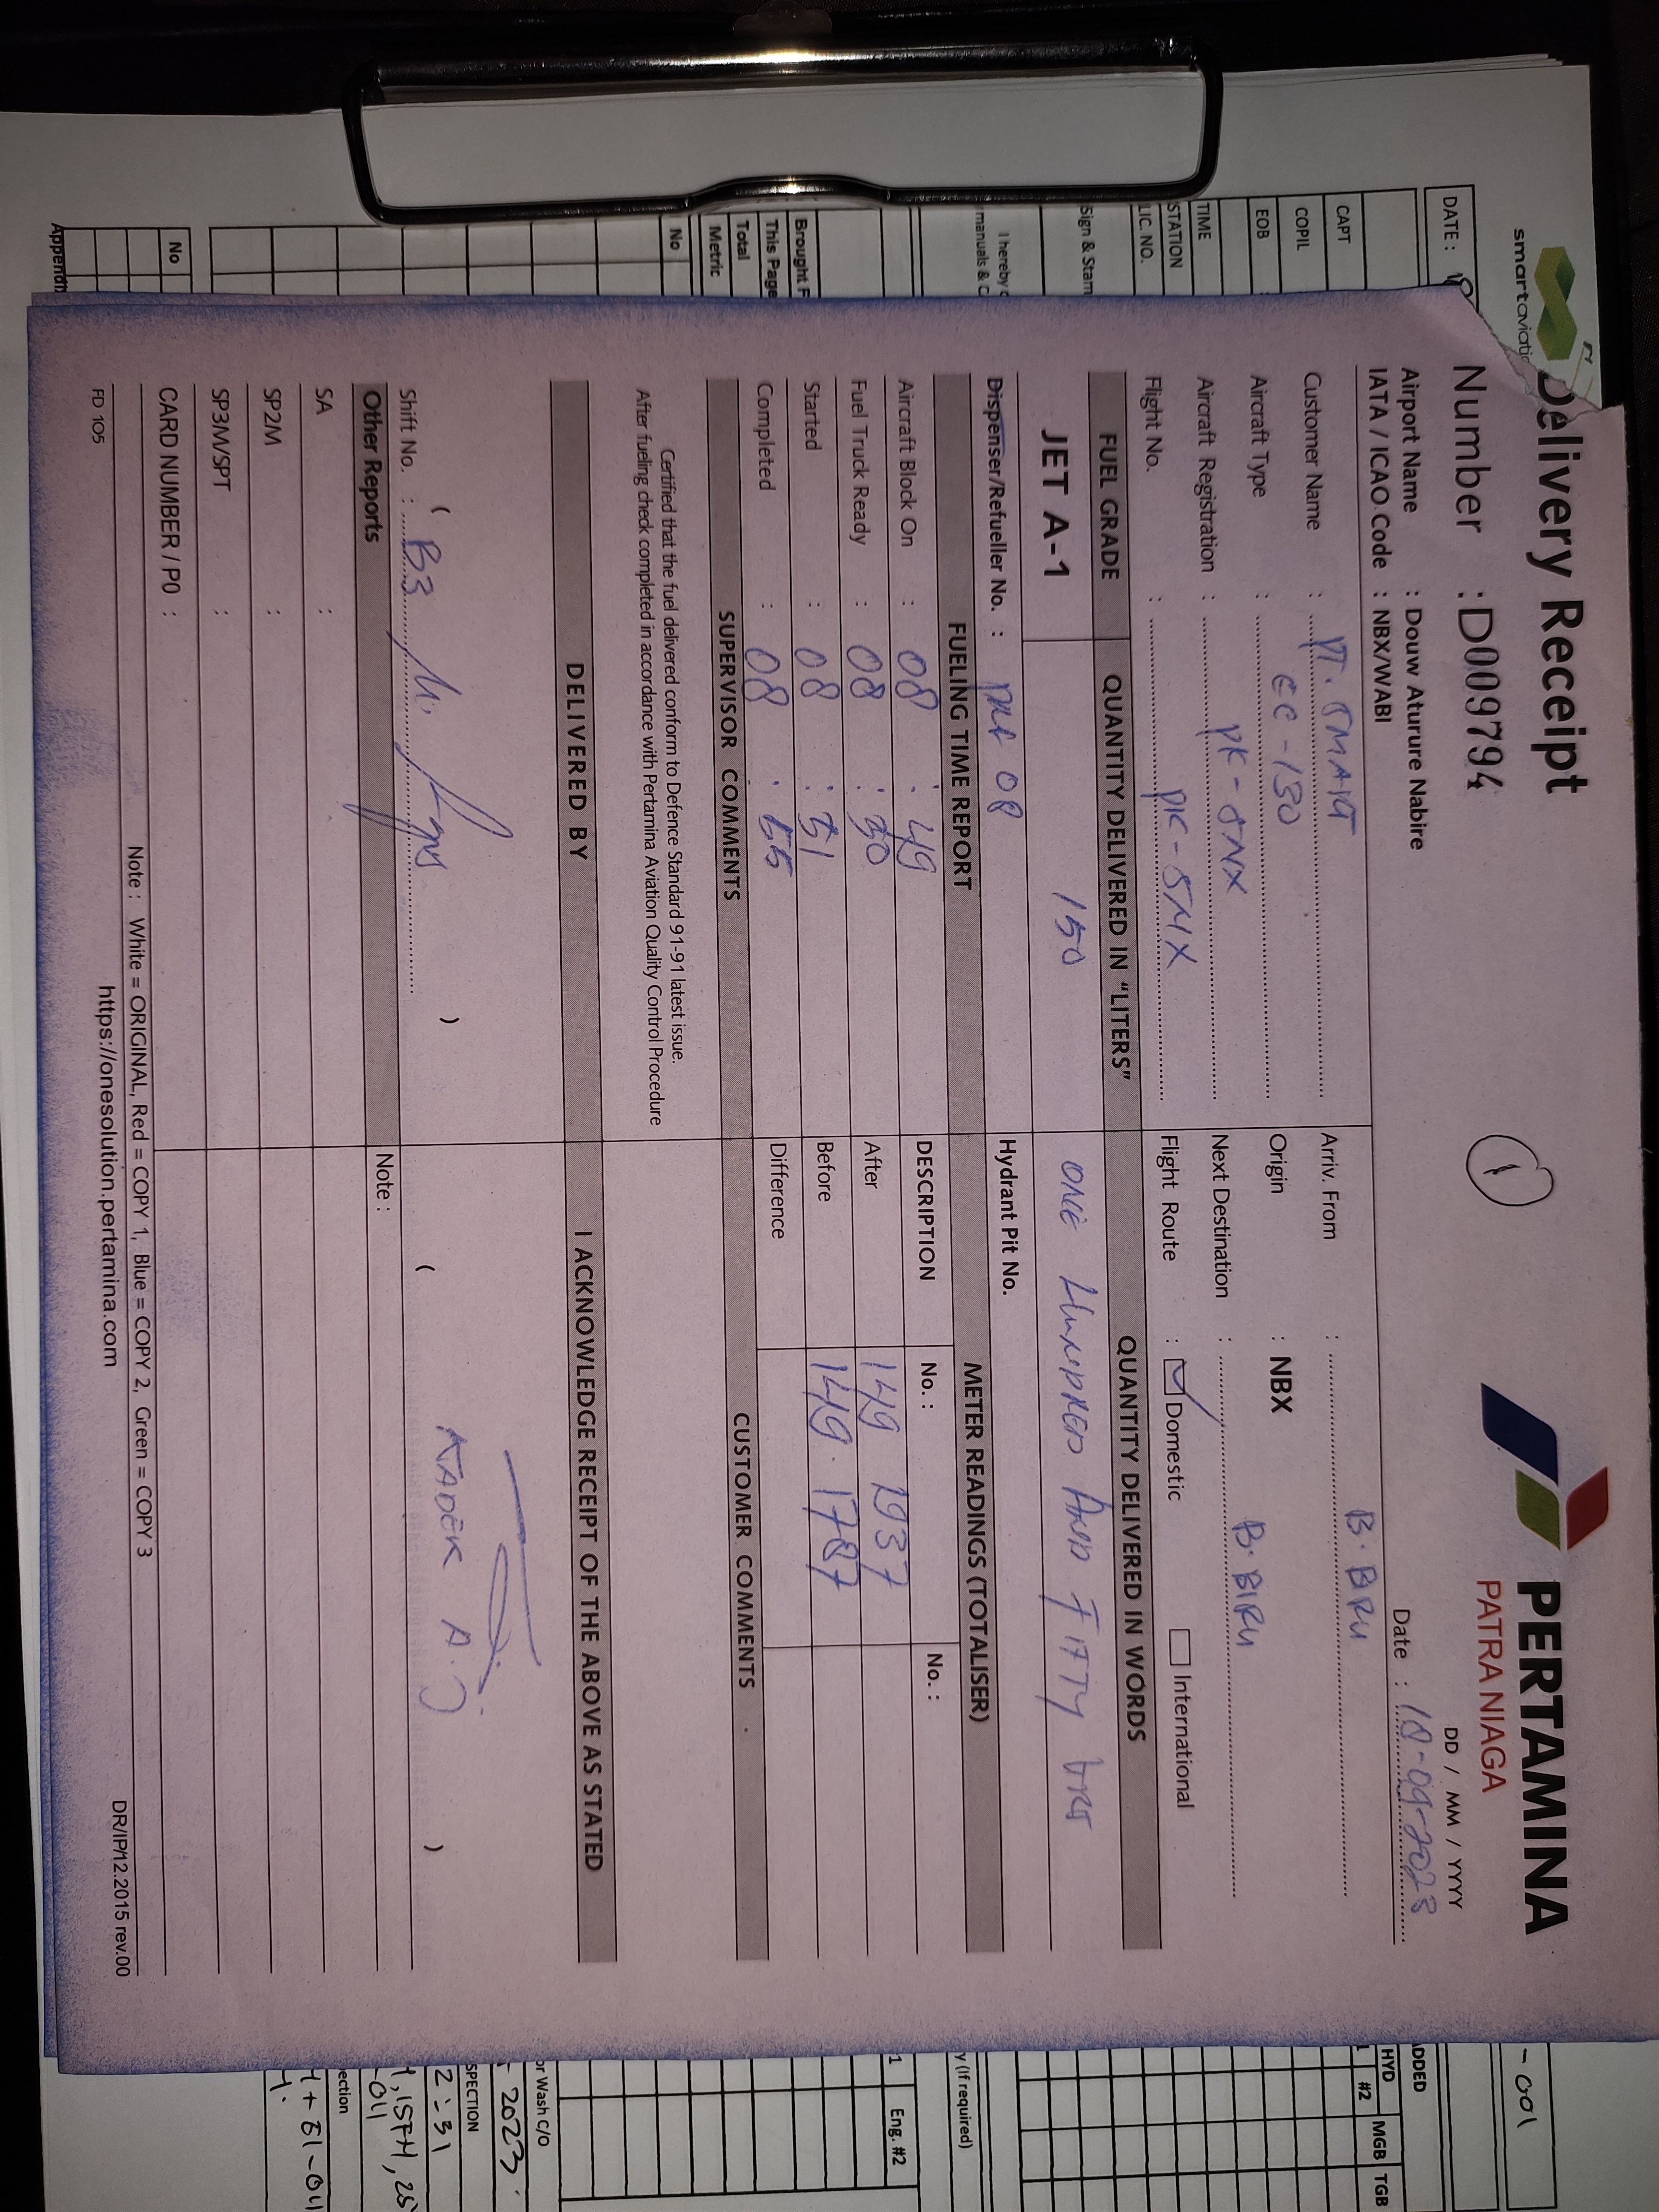 Delivery Receipt
Number : D009794
1
PERTAMINA
PATRA NIAGA
DD / MM / YYYY
Date : 18-09-2023
Airport Name : Douw Aturure Nabire
IATA / ICAO Code : NBX/WABI
Customer Name : PT. SMART
Aircraft Type : EC-130
Aircraft Registration : PK-SNX
Flight No. : PK-SNX
Arriv. From : B. BIRU
Origin : NBX
Next Destination : B. BIRU
Flight Route : Domestic International
FUEL GRADE QUANTITY DELIVERED IN "LITERS" QUANTITY DELIVERED IN WORDS
JET A-1 150 ONE HUNDRED AND FIFTY
Dispenser/Refueller No. : 08 Hydrant Pit No.
FUELING TIME REPORT METER READINGS (TOTALISER)
Aircraft Block On : 08 : 49 DESCRIPTION No. : No. :
Fuel Truck Ready : 08 : 50 After 149 1937
Started : 08 : 51 Before 149 . 1787
Completed : 08 : 55 Difference
SUPERVISOR COMMENTS CUSTOMER COMMENTS
Certified that the fuel delivered conform to Defence Standard 91-91 latest issue.
After fueling check completed in accordance with Pertamina Aviation Quality Control Procedure
DELIVERED BY I ACKNOWLEDGE RECEIPT OF THE ABOVE AS STATED
( ) ( KADEK A. )
Shift No. : B3
Other Reports Note :
SA :
SP2M :
SP3M/SPT :
CARD NUMBER / PO :
Note : White = ORIGINAL, Red = COPY 1, Blue = COPY 2, Green = COPY 3
FD 105 https://onesolution.pertamina.com DR/IP/12.2015 rev.00
smartaviatio
DATE :
CAPT
COPIL
EOB
TIME
STATION
LIC. NO.
Sign & Stam
I hereby c
manuals & C
Brought F
This Page
Total
Metric
No
No
Appendi
-001
ADDED
HYD MGB TGB
#2
y (If required)
1 Eng. #2
or Wash c/o
2023
SPECTION
2:31
-04
ection